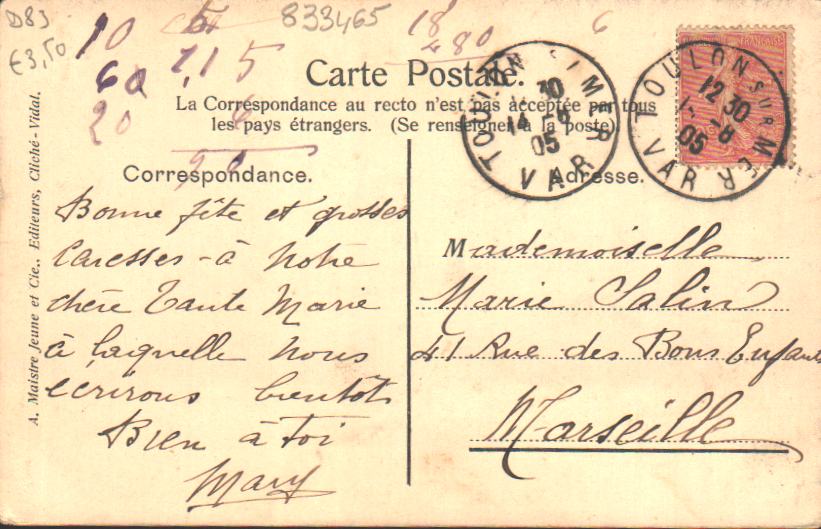 D83
€3,50
10
60
20
5
1,15
6
90
833465
18
480
6
Carte Postale.
La Correspondance au recto n'est pas acceptée par tous
les pays étrangers. (Se renseigner à la poste).
TOULON SUR MER
30
14 -8
05
VAR
TOULON SUR MER
12 30
-8
05
VAR
Correspondance.
Bonne fête et grosses
Caresses à notre
chère Tante Marie
à laquelle nous
écrirons bientôt
Bien à toi
Mary
Adresse.
Mademoiselle
Marie Salin
41 Rue des Bons Enfants
Marseille
A. Maistre Jeune et Cie., Editeurs, Cliché-Vidal.